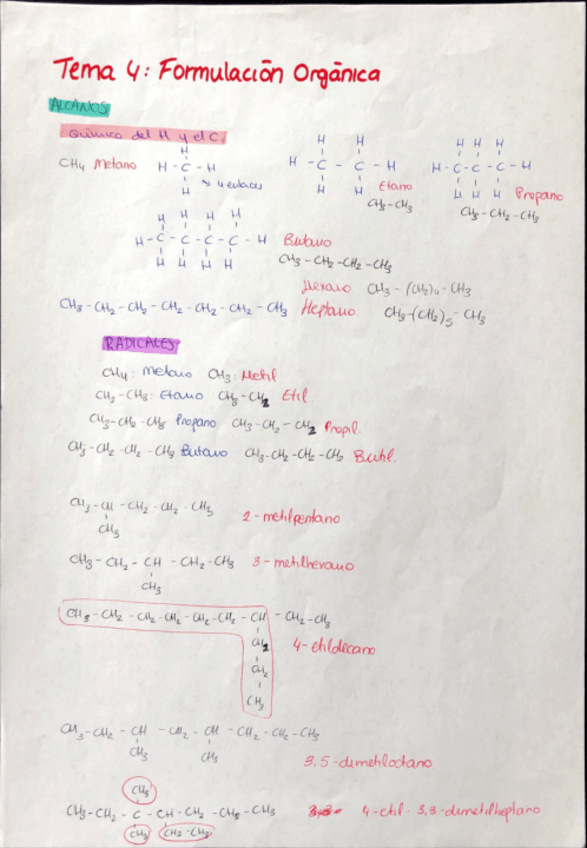 Tema 4: Formulación Orgánica
ALCANOS
Química del H y el C.
CH4 Metano
H
H - C - H
H
4 enlaces
H H
H - C - C - H
H H
Etano
CH3-CH3
H H H
H-C-C-C-H
H H H
Propano
CH3-CH2-CH3
H H H H
H-C-C-C-C-H
H H H H
Butano
CH3-CH2-CH2-CH3
Hexano CH3-(CH2)4-CH3
CH3-CH2-CH2-CH2-CH2-CH2-CH3 Heptano CH3-(CH2)5-CH3
RADICALES
CH4: Metano CH3: Metil
CH3-CH3: Etano CH3-CH2 Etil
CH3-CH2-CH3 Propano CH3-CH2-CH2 Propil.
CH3-CH2-CH2-CH3 Butano CH3-CH2-CH2-CH2 Butil.
CH3-CH-CH2-CH2-CH3
CH3
2-metilpentano
CH3-CH2-CH-CH2-CH3 3-metilhexano
CH3
CH3-CH2-CH2-CH2-CH2-CH2-CH-CH2-CH3
CH2
CH2
CH3
4-etildecano
CH3-CH2-CH-CH2-CH-CH2-CH2-CH3
CH3 CH3
3,5-dimetiloctano
CH3
CH3-CH2-C-CH-CH2-CH2-CH3 4-etil-3,3-dimetilheptano
CH3 CH2-CH3